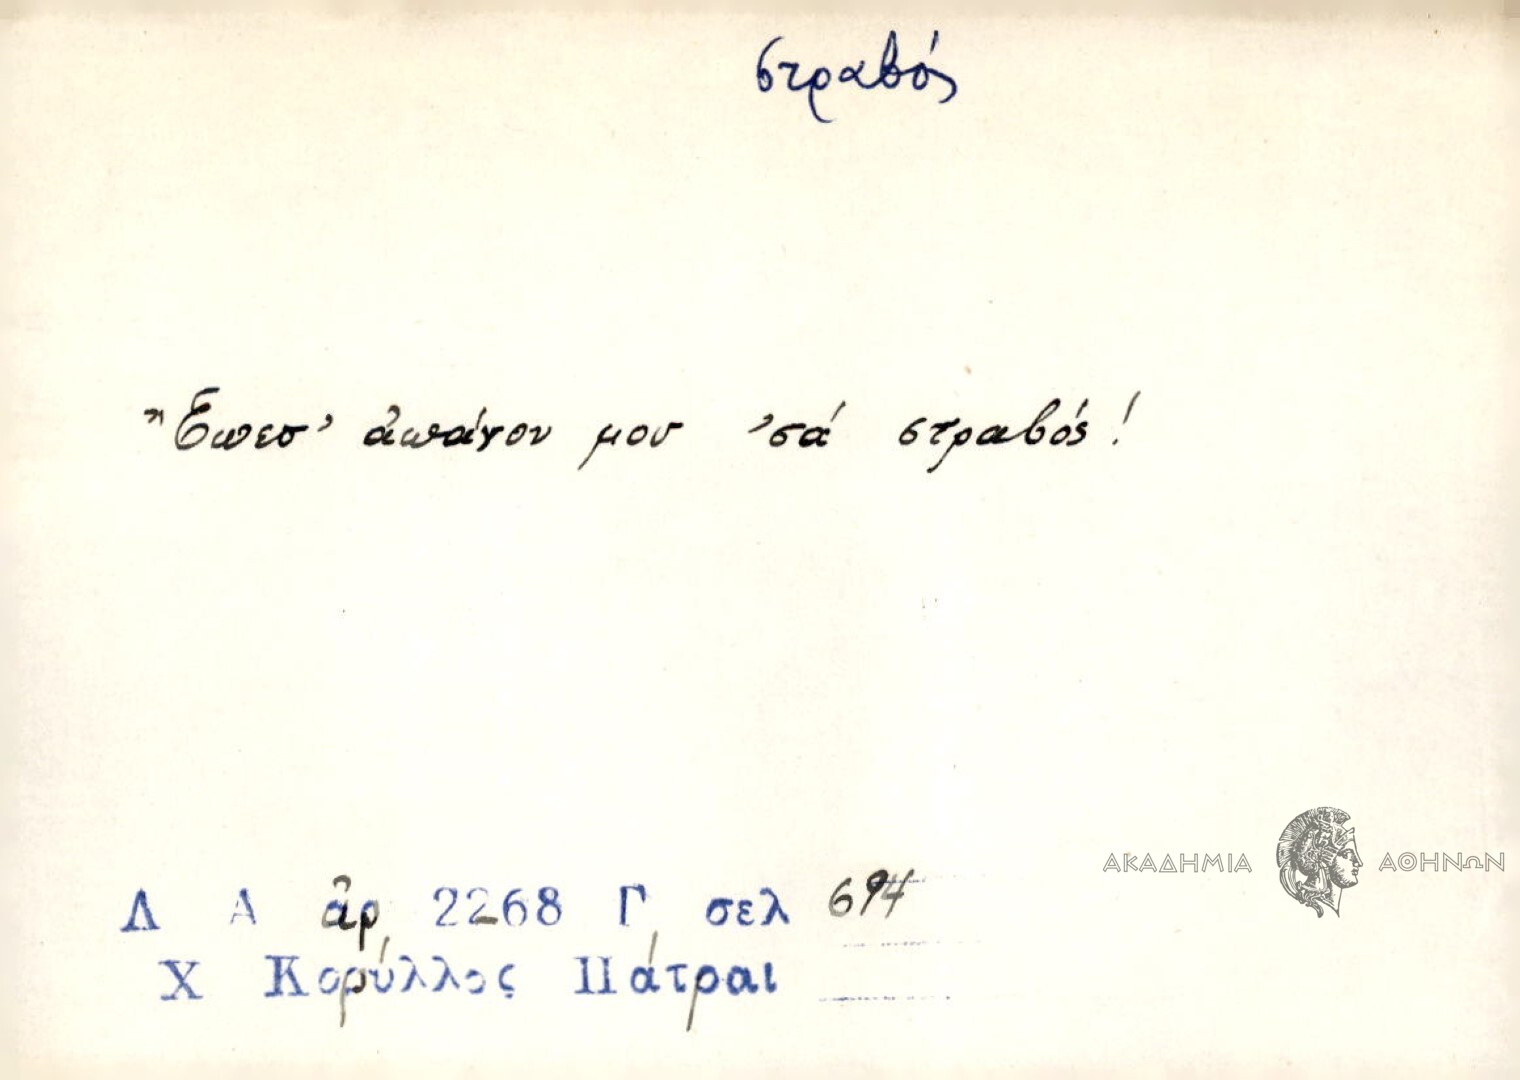 στραβός
Ἔπεσ' ἀπάνου μου 'σά στραβός!
ΑΚΑΔΗΜΙΑ ΑΘΗΝΩΝ
Λ Α ἀρ 2268 Γ, σελ 694
Χ Κορύλλος Πάτραι